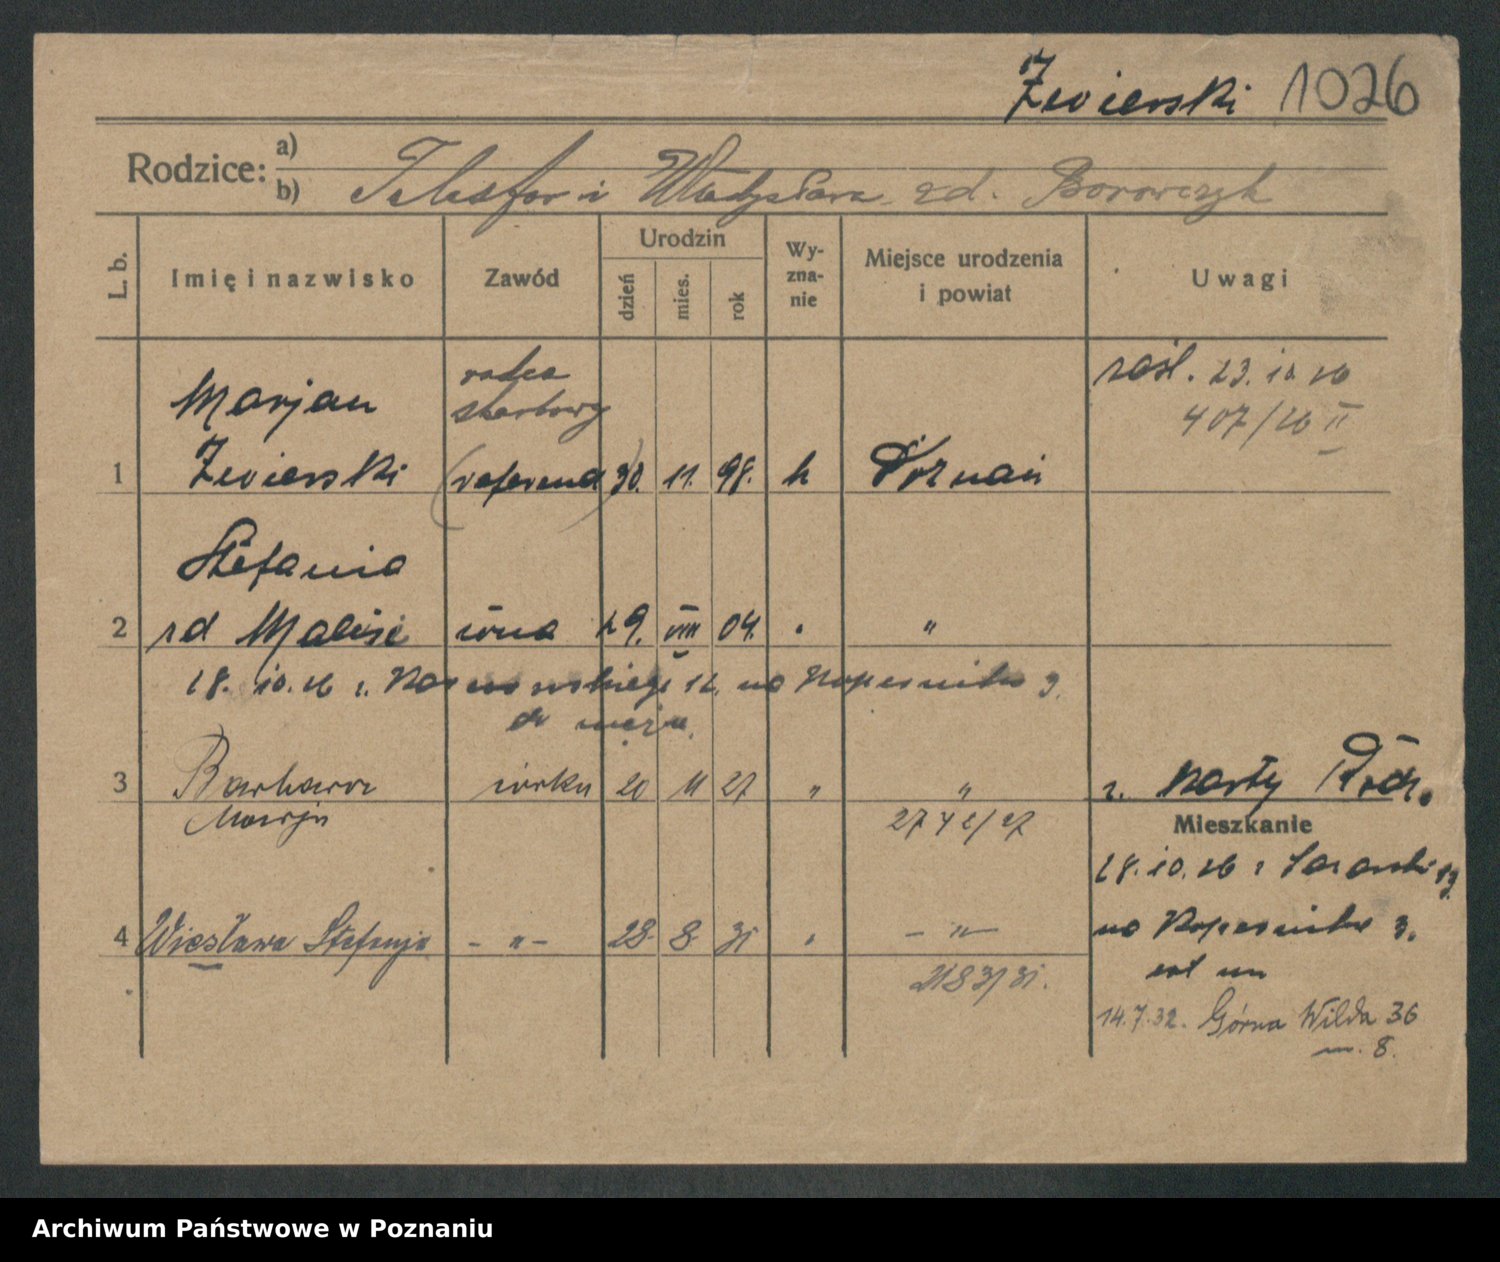 Zwierski 1026
Rodzice: a)
b) Telesfor i Władysława zd. Borowczyk
L. b.
Imię i nazwisko
Zawód
Urodzin
dzień
mies.
rok
Wy-
zna-
nie
Miejsce urodzenia
i powiat
Uwagi
Marjan radca zaśl. 23. 10 26
skarbowy 407/26 II
1 Zwierski (referend) 30. 11. 98. k Poznań
Stefania
2 zd żona 29. VIII 04. " "
28. 10. 26 z. 12. na Kopernika 3.
do męża.
3 Barbara córka 20 11 27 " " z. karty
Marja 2742/27
Mieszkanie
28. 10. 26 z 19
4 Wiesława Stefanja - " - 28. 8. 31 " - " -
na Kopernika 3.
2183/31.
14. 7. 32. Górna Wilda 36
m. 8.
Archiwum Państwowe w Poznaniu